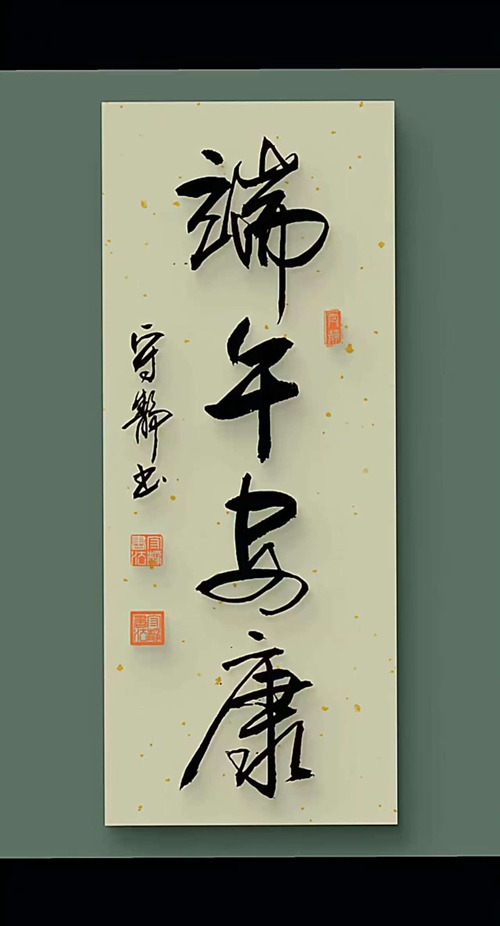 端午安康
守静书